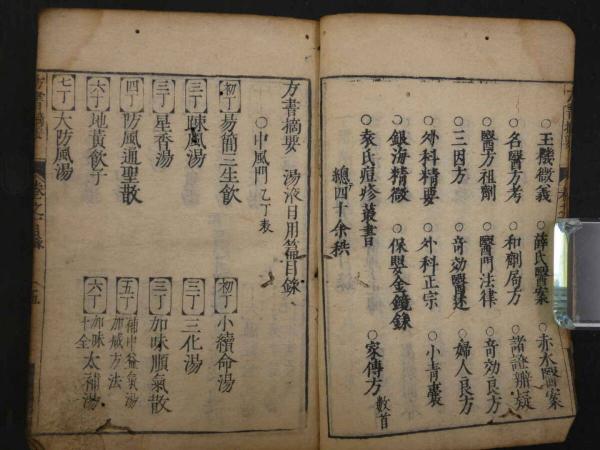 ○玉機微義 ○薛氏醫案 ○赤水醫案
○名醫方考 ○和劑局方 ○諸證辨疑
○醫方祖劑 ○醫門法律 ○奇効良方
○三因方 ○奇効醫述 ○婦人良方
○外科精要 ○外科正宗 ○小青囊
○銀海精微 ○保嬰金鏡錄
○袁氏痘疹叢書 ○家傳方 数首
總四十余秩
方書摘要 湯液日用篇目錄
○中風門 乙丁表
初丁 易簡三生飲 初丁 小續命湯
三丁 踈風湯 三丁 三化湯
三丁 星香湯 三丁 加味順氣散
四丁 防風通聖散 五丁 補中益氣湯加減方法
六丁 地黃飲子 六丁 加味十全太補湯
七丁 大防風湯
方書摘要